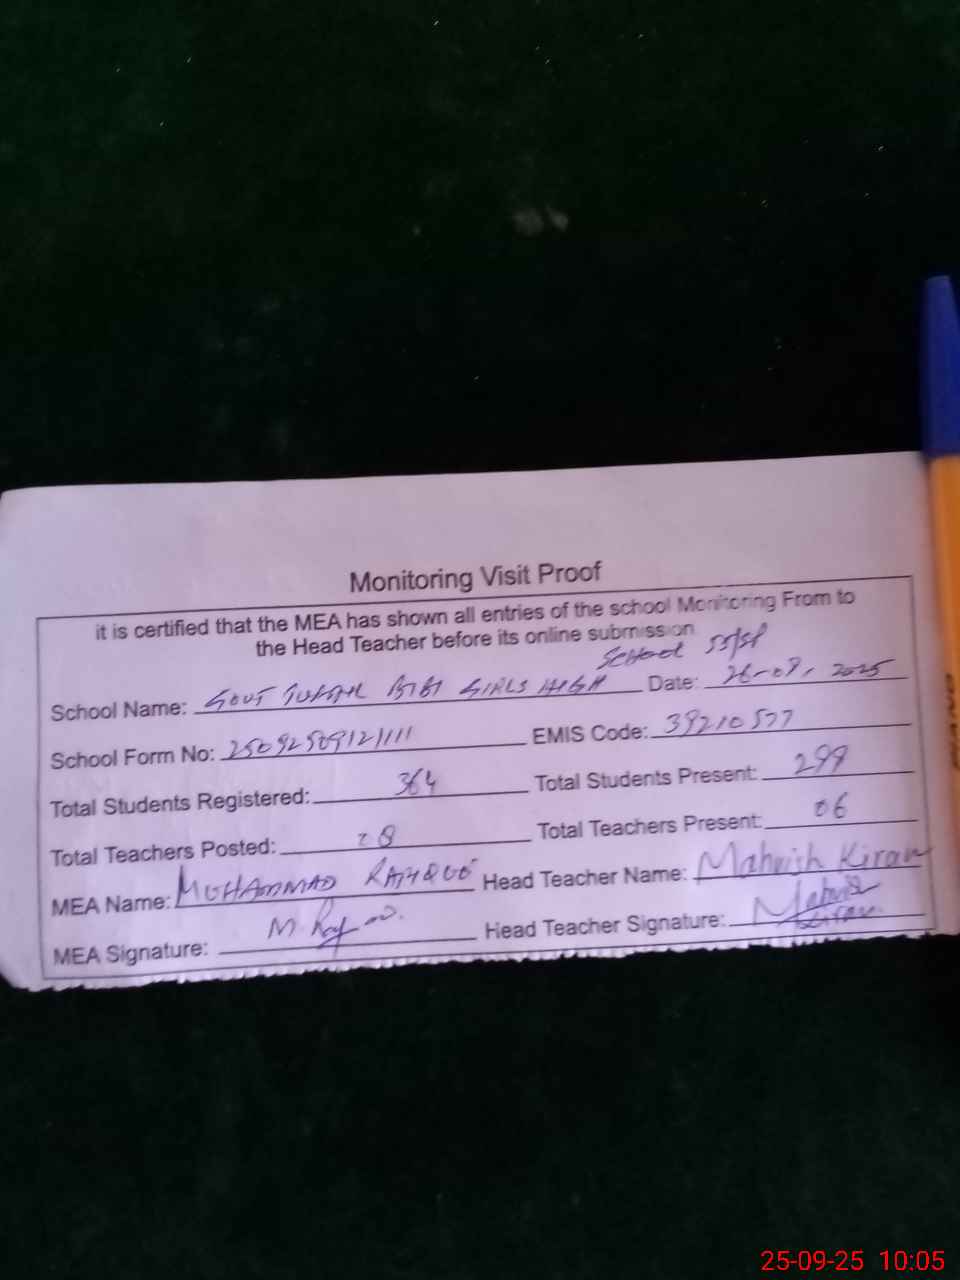 Monitoring Visit Proof
it is certified that the MEA has shown all entries of the school Monitoring From to
the Head Teacher before its online submission
School Name: GOVT BIBI GIRLS HIGH School Date: 2025
School Form No: EMIS Code: 39210577
Total Students Registered: 364 Total Students Present: 299
Total Teachers Posted: 08 Total Teachers Present: 06
MEA Name: MUHAMMAD Head Teacher Name: Mahvish Kiran
MEA Signature: Head Teacher Signature: Mahvish Kiran
25-09-25 10:05